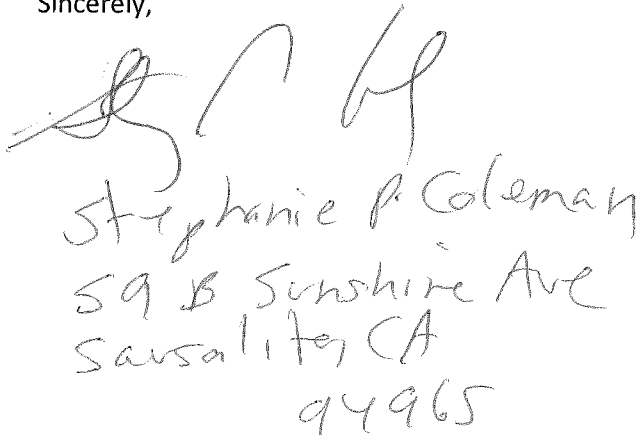 Sincerely,
Stephanie P. Coleman
59 B Sunshine Ave
Sausalito, CA
94965